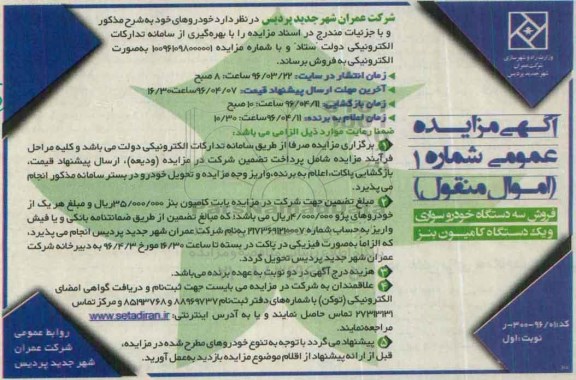 وزارت راه و شهرسازی
شرکت عمران
شهر جدید پردیس
آگهی مزایده
عمومی شماره ۱
(اموال منقول)
فروش سه دستگاه خودرو سواری
و یک دستگاه کامیون بنز
شرکت عمران شهر جدید پردیس در نظر دارد خودروهای خود به شرح مذکور
و با جزئیات مندرج در اسناد مزایده را با بهره‌گیری از سامانه تدارکات
الکترونیکی دولت ستاد و با شماره مزایده ۱۰۰۹۶۱۰۹۸۰۰۰۰۰۱ به‌صورت
الکترونیکی به فروش برساند.
زمان انتشار در سایت: ۹۶/۰۳/۲۲ ساعت: ۸ صبح
آخرین مهلت ارسال پیشنهاد قیمت: ۹۶/۰۴/۰۷ ساعت ۱۶/۳۰
زمان بازگشایی: ۹۶/۰۴/۱۱ ساعت: ۱۰ صبح
زمان اعلام به برنده: ۹۶/۰۴/۱۱ ساعت: ۱۰/۳۰
ضمنا رعایت موارد ذیل الزامی می باشد:
۱ برگزاری مزایده صرفا از طریق سامانه تدارکات الکترونیکی دولت می باشد و کلیه مراحل
فرآیند مزایده شامل پرداخت تضمین شرکت در مزایده (ودیعه)، ارسال پیشنهاد قیمت،
بازگشایی پاکات، اعلام به برنده، واریز وجه مزایده و تحویل خودرو در بستر سامانه مذکور انجام
می پذیرد.
۲ مبلغ تضمین جهت شرکت در مزایده بابت کامیون بنز ۳۵/۰۰۰/۰۰۰ ریال و مبلغ هر یک از
خودروهای پژو ۴/۰۰۰/۰۰۰ ریال می باشد؛ که مبالغ تضمین از طریق ضمانتنامه بانکی و یا فیش
واریز به حساب شماره بنام شرکت عمران شهر جدید پردیس انجام می پذیرد،
که الزاما به‌صورت فیزیکی در پاکت در بسته تا ساعت ۱۶/۳۰ مورخ ۹۶/۴/۳ به دبیرخانه شرکت
عمران شهر جدید پردیس تحویل گردد.
۳ هزینه درج آگهی در دو نوبت به عهده برنده می‌باشد.
۴ علاقمندان به شرکت در مزایده می بایست جهت ثبت‌نام و دریافت گواهی امضای
الکترونیکی (توکن) با شماره‌های دفتر ثبت‌نام ۸۸۹۶۹۷۳۷ و ۸۵۱۹۳۷۶۸ و مرکز تماس
۲۷۳۱۳۱۳۱ تماس حاصل نمایند و یا به آدرس اینترنتی: www.setadiran.ir
مراجعه نمایند.
۵ پیشنهاد می گردد با توجه به تنوع خودروهای مطرح شده در مزایده،
قبل از ارائه پیشنهاد از اقلام موضوع مزایده بازدید به عمل آورید.
کد: ۹۶/۰۱-۳۰۰-ر
نوبت: اول
روابط عمومی
شرکت عمران
شهر جدید پردیس